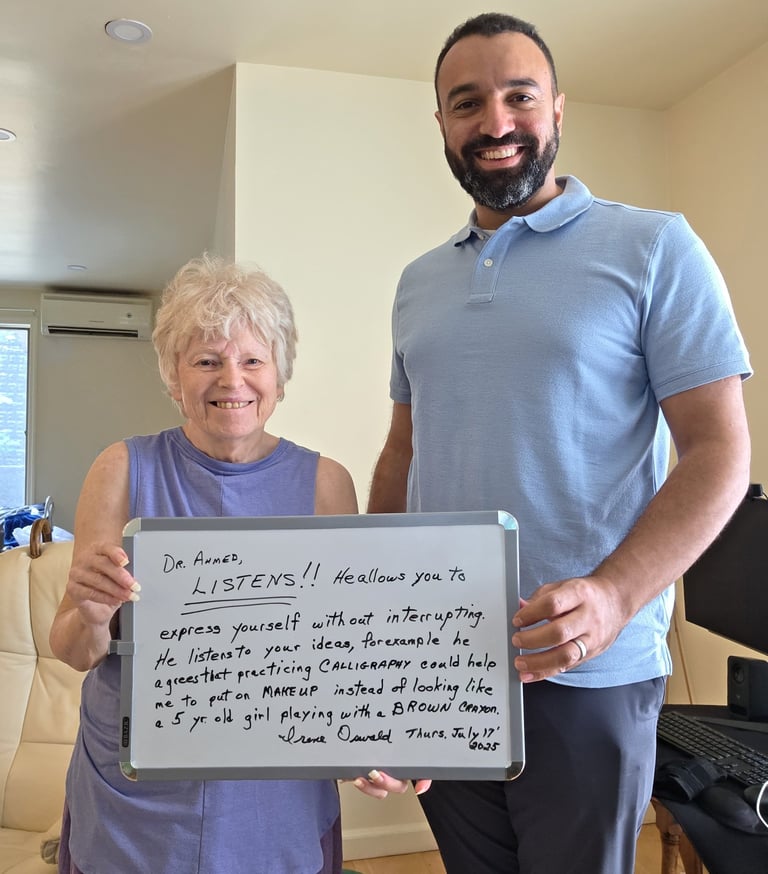 Dr. Ahmed,
LISTENS!! He allows you to
express yourself without interrupting.
He listens to your ideas, for example he
agrees that practicing CALLIGRAPHY could help
me to put on MAKEUP instead of looking like
a 5 yr. old girl playing with a BROWN CRAYON.
Irene Oswald Thurs. July 17'
2025